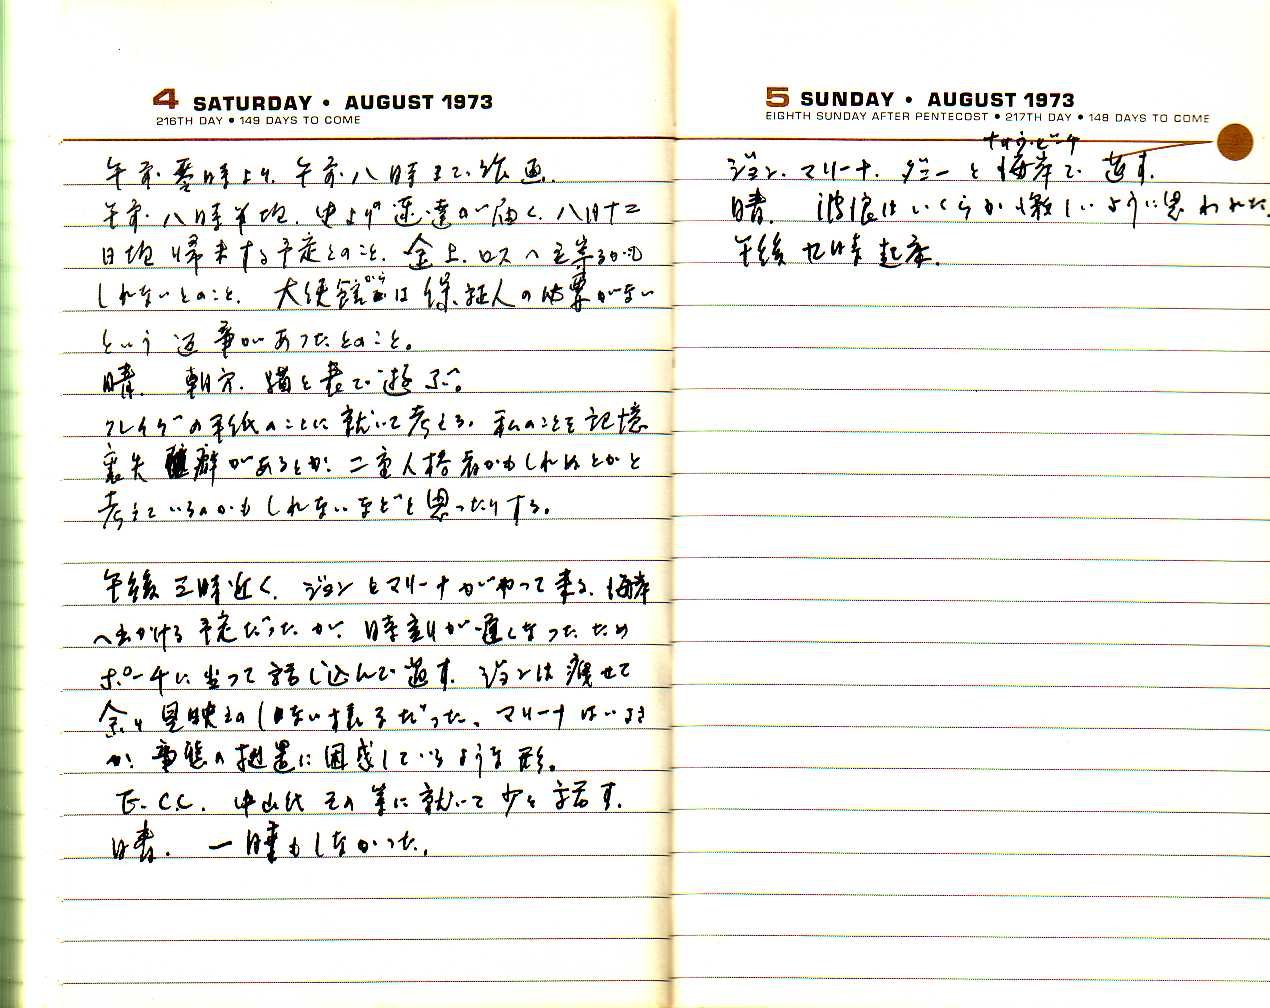 4 SATURDAY • AUGUST 1973
216TH DAY • 149 DAYS TO COME
午前零時より、午前八時まで絵画。
午前八時半頃、より速達が届く、八月十二
日頃帰来する予定とのこと、ロスへ
しれないとのこと、大使館からは保証人の必要がない
という返事があったとのこと。
晴、朝方、猫と表で遊ぶ。
クレイグの手紙のことに就いて考える、私のことを記憶
喪失癖があるとか、二重人格者かもしれぬとかと
考えているのかもしれないなどと思ったりする。
午後三時近く、ジョンとマリーナがやって来る、海岸
へ出かける予定だったが、時刻が遅くなったため
ポーチに坐って話し込んで過す、ジョンは痩せて
余り見映えのしない様子だった、マリーナはいささ
か、事態の措置に困惑しているような形。
E.C.C. その に就いて少々話す。
晴、一睡もしなかった。
5 SUNDAY • AUGUST 1973
EIGHTH SUNDAY AFTER PENTECOST • 217TH DAY • 148 DAYS TO COME
ビーチ
ジョン、マリーナ、ダニーと海岸で過す。
晴、波浪はいくらか激しいように思われた。
午後七時起床。